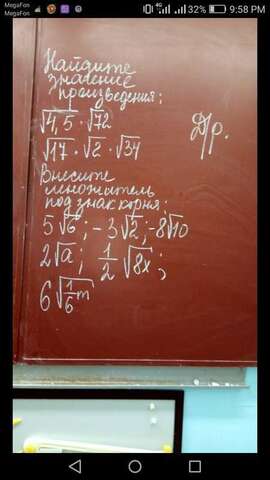 MegaFon
MegaFon
4G 32% 9:58 PM
Найдите
значение
произведения:
√4,5 · √72
√17 · √2 · √34
Д/р.
Внесите
множитель
под знак корня:
5√6; -3√2; -8√10
2√a; 1/2 √8x;
6√1/6 m